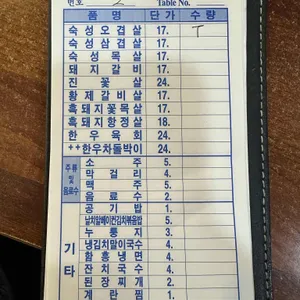 번호 2 Table No.
품 명 단 가 수 량
숙성오겹살 17. T
숙성삼겹살 17.
숙성목살 17.
돼지갈비 17.
진꽃살 24.
황제갈비살 17.
흑돼지꽃목살 17.
흑돼지항정살 18.
한우육회 24.
++한우차돌박이 24.
주류 및 음료수
소주 5.
막걸리 4.
맥주 5.
음료수 2.
기타
공기밥 1.
날치알베이컨김치볶음밥 5.
누룽지 3.
냉김치말이국수 4.
함흥냉면 4.
잔치국수 4.
된장찌개 2.
계란찜 1.